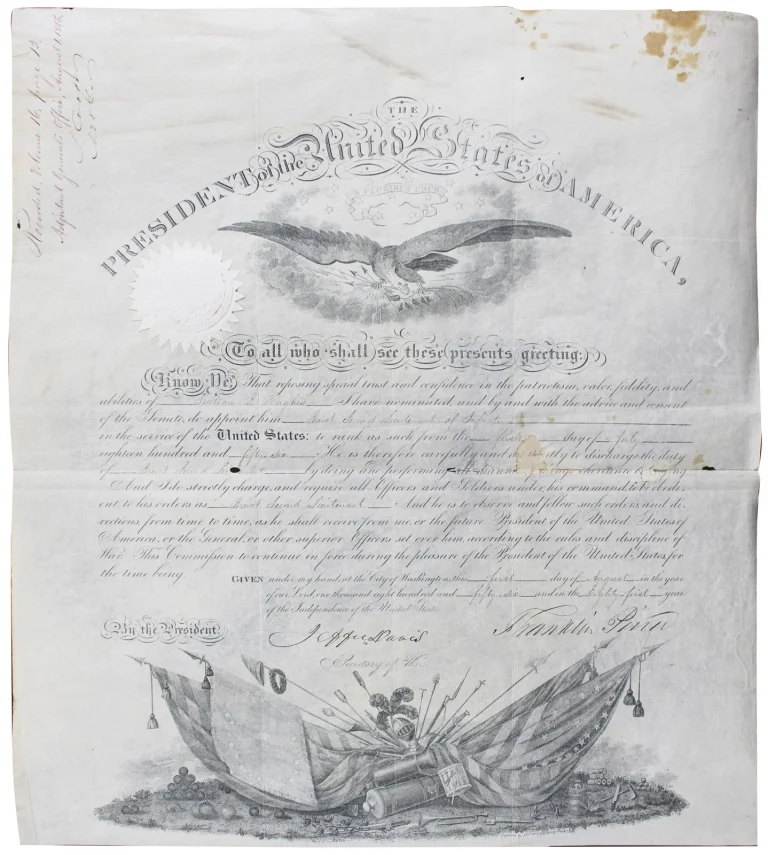 Recorded, Volume 16, page 13
Adjutant General's Office, August
THE
PRESIDENT of the United States of AMERICA,
E PLURIBUS UNUM
To all who shall see these presents greeting:
Know Ye, That reposing special trust and confidence in the patriotism, valor, fidelity, and
abilities of William Hughes I have nominated, and by and with the advice and consent
of the Senate, do appoint him Brevet Second Lieutenant of Infantry
in the service of the United States: to rank as such from the first day of July
eighteen hundred and fifty six. He is therefore carefully and diligently to discharge the duty
of Brevet Second Lieutenant by doing and performing all manner of things thereunto belonging.
And I do strictly charge, and require all Officers and Soldiers under his command, to be obedi-
ent to his orders as Brevet Second Lieutenant. And he is to observe and follow such orders, and di-
rections, from time to time, as he shall receive from me, or the future President of the United States of
America, or the General, or other superior Officers set over him, according to the rules and discipline of
War. This Commission to continue in force during the pleasure of the President of the United States, for
the time being.
GIVEN under my hand, at the City of Washington, this first day of August in the year
of our Lord, one thousand eight hundred and fifty-six and in the Eighty first year
of the Independence of the United States.
By the President,
Jeffn Davis
Franklin Pierce
Secretary of War.